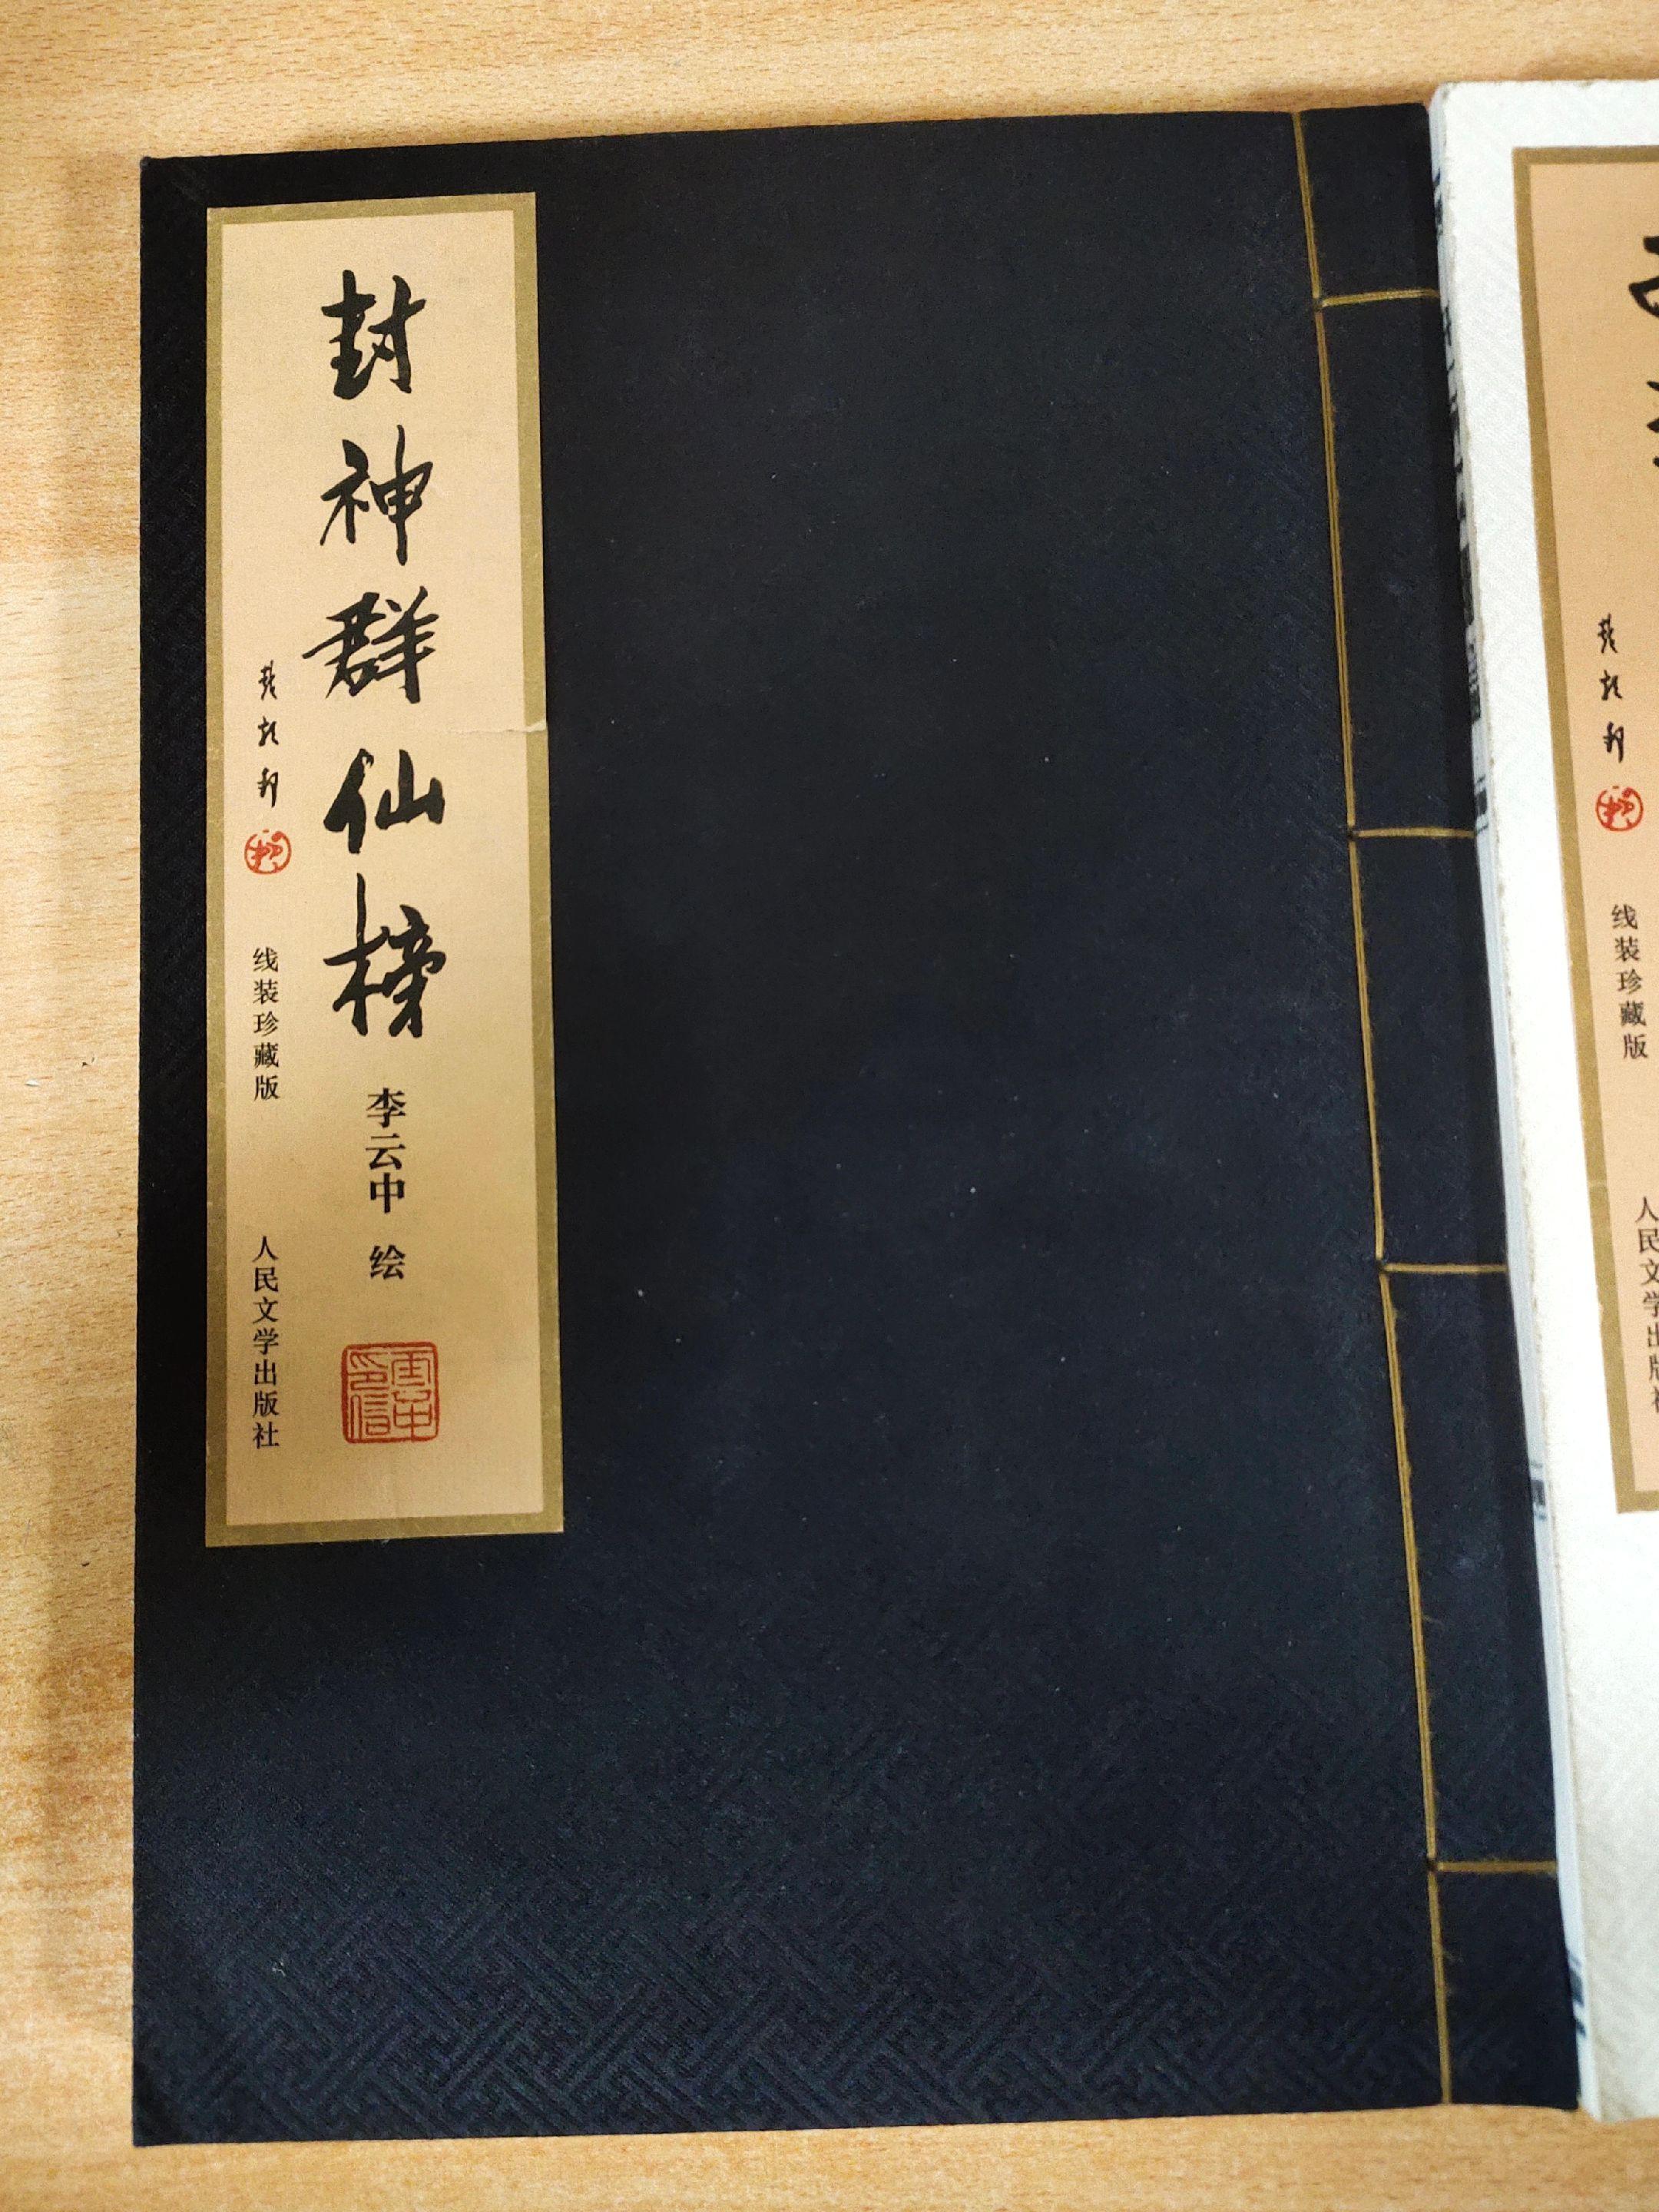 封神群仙榜
李云中 绘
雲中印信
线装珍藏版
人民文学出版社
线装珍藏版
人民文学出版社